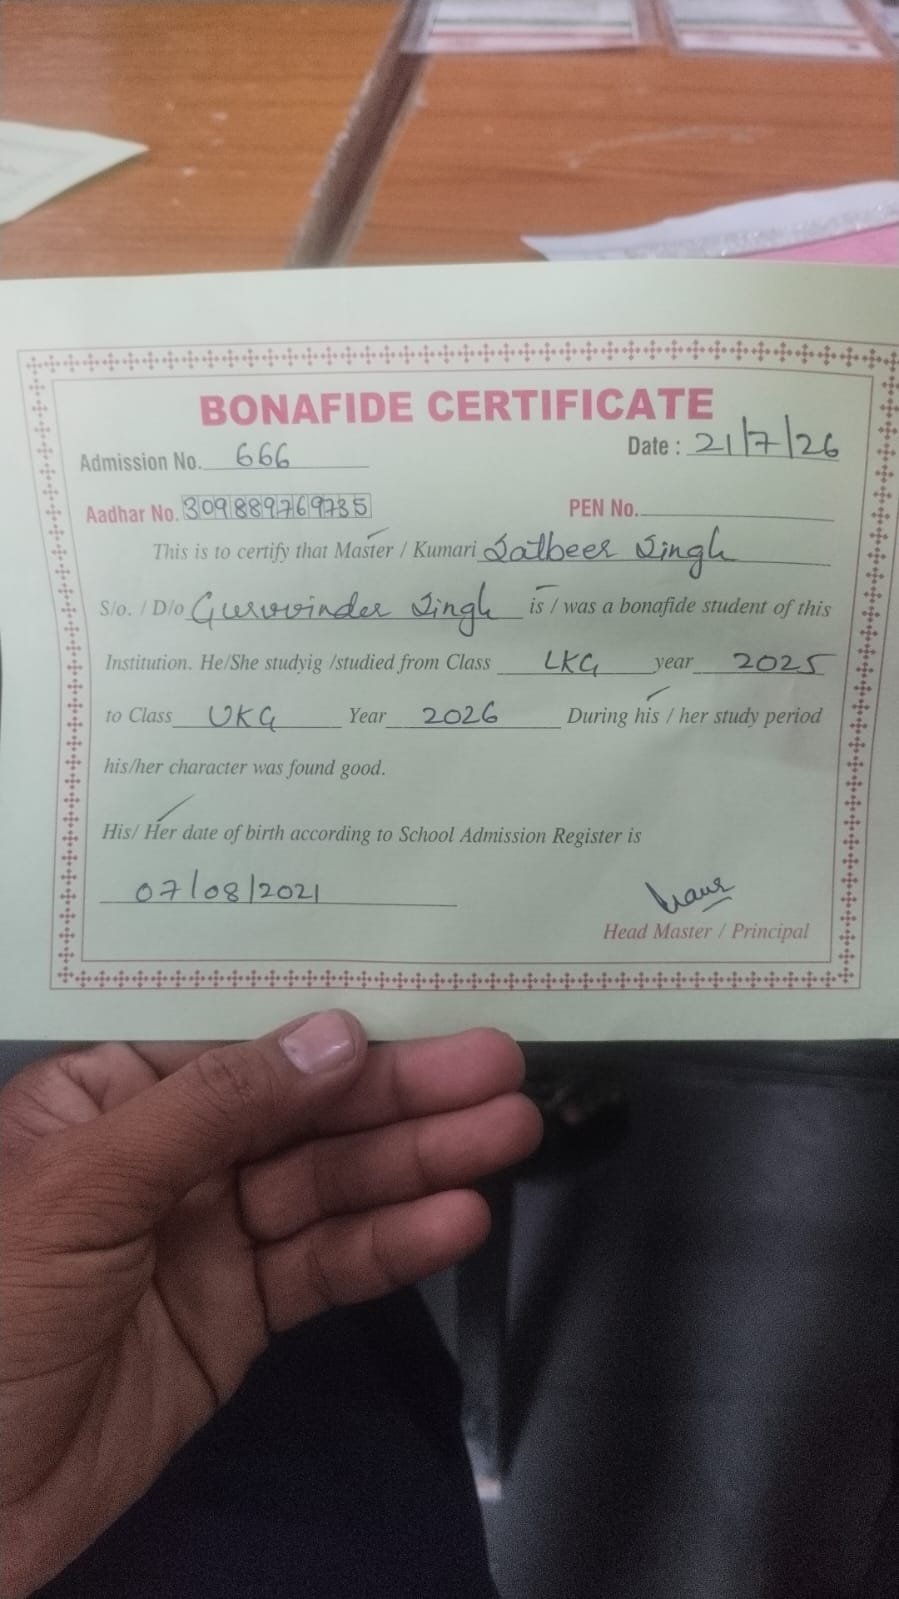 BONAFIDE CERTIFICATE
Admission No. 666 Date : 21/7/26
Aadhar No. 309889769735 PEN No.
This is to certify that Master / Kumari Satbeer Singh
S/o. / D/o Gurwinder Singh is / was a bonafide student of this
Institution. He/She studyig /studied from Class LKG year 2025
to Class UKG Year 2026 During his / her study period
his/her character was found good.
His/ Her date of birth according to School Admission Register is
07/08/2021
Head Master / Principal